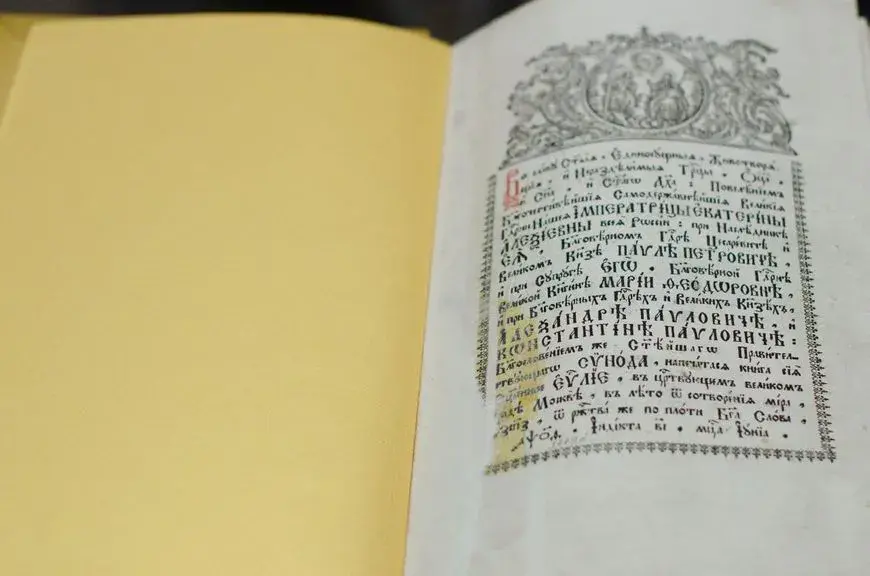 Во славу Ст҃ыѧ, Единосꙋщныѧ, Животворѧ-
щїѧ, и Нераздѣлимыѧ Трⷪ҇цы, Ѻц҃а,
и Сн҃а, и Ст҃агѡ Дх҃а: Повелѣнїемъ
Бл҃гочестивѣйшїѧ Самодержавнѣйшїѧ Великїѧ
Гдⷭ҇рни Нашеѧ ІМПЕРАТРИЦЫ ЕКАТЕРИНЫ
АЛЕѮІЕВНЫ всеѧ Рѡссїи: при Наслѣдникѣ
ЕѦ, Бл҃говѣрномъ Гдⷭ҇рѣ Цесаревичѣ и
Великомъ Кнѧзѣ ПАѴЛѢ ПЕТРОВИЧѢ,
и при Сꙋпрꙋгѣ ЕГѠ, Бл҃говѣрной Гдⷭ҇рнѣ
Великой Кнѧгинѣ МАРІИ ѲЕОДѠРОВНѢ,
и при Бл҃говѣрныхъ Гдⷭ҇рѣхъ и Великихъ Кнѧзѣхъ,
АЛЕѮАНДРѢ ПАѴЛОВИЧѢ, и
КѠНСТАНТІНѢ ПАѴЛОВИЧѢ:
Бл҃гословенїемъ же Ст҃ѣйшагѡ Правител-
ствꙋющагѡ СѴНОДА, напечатасѧ книга сїѧ
ЕѴⷢ҇ЛІЕ, въ црⷭ҇твꙋющемъ великомъ
градѣ Москвѣ, въ лѣто ѿ сотворенїѧ мїра,
ѿ ржⷭ҇тва же по плоти Бг҃а Слова,
Індікта в҃і, мцⷭ҇а Іꙋнїа.